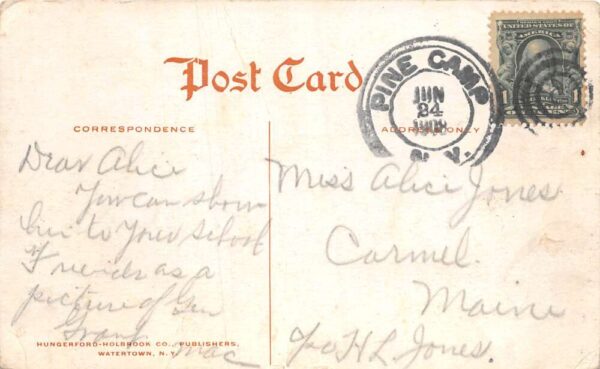 Post Card
PINE CAMP
JUN
24
1908
N.Y.
UNITED STATES OF
AMERICA
1 1
CORRESPONDENCE
ADDRESS ONLY
Dear Alice
You can show
to your school
Friends as a
picture of Gen
Grant
Mac
Miss Alice Jones
Carmel.
Maine
c/o H L Jones.
HUNGERFORD-HOLBROOK CO., PUBLISHERS,
WATERTOWN, N.Y.